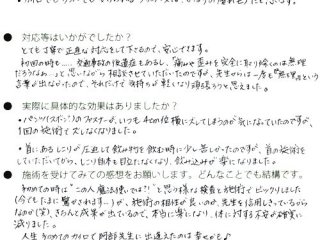 ● 対応等はいかがでしたか？
とても丁寧で正直な対応をして下さるので、安心できます。
初回の時も… 交通事故の後遺症とかもあるし、「痛みや歪みを完全に取り除くのは無理
だろうなぁ…」と思いながら相談させていただいたのですが、先生からは一度も"無理"という
言葉が出なかったので、それだけで気持ちが軽くなり頑張ろうと思えました。
● 実際に具体的な効果はありましたか？
・パンツ(ズボン)のファスナーが、いつも 左の位置に大てしまうのが気になっていたのですが、
1回の施術で大しなくなりました。
・首にあるしこりが圧迫して飲み物を飲む時に少し苦しかったのですが、首の施術を
していただいてから、しこり自体も目立たなくなり、飲み込みが楽になりました。
● 施術を受けてみての感想をお願いします。どんなことでも結構です。
初めての時は"この人魔法使いでは?!"と思う様な検査と施術でビックリしました
(今でもたまに驚かされます…)が、施術の相性が良いのか、先生を信用しているから
なのか(笑)、きちんと効果が出ているので、本当に楽になり、体に対する不安が確実に
減りました。
人生初めてのカイロで阿部先生に出逢えたのは幸せかも♪